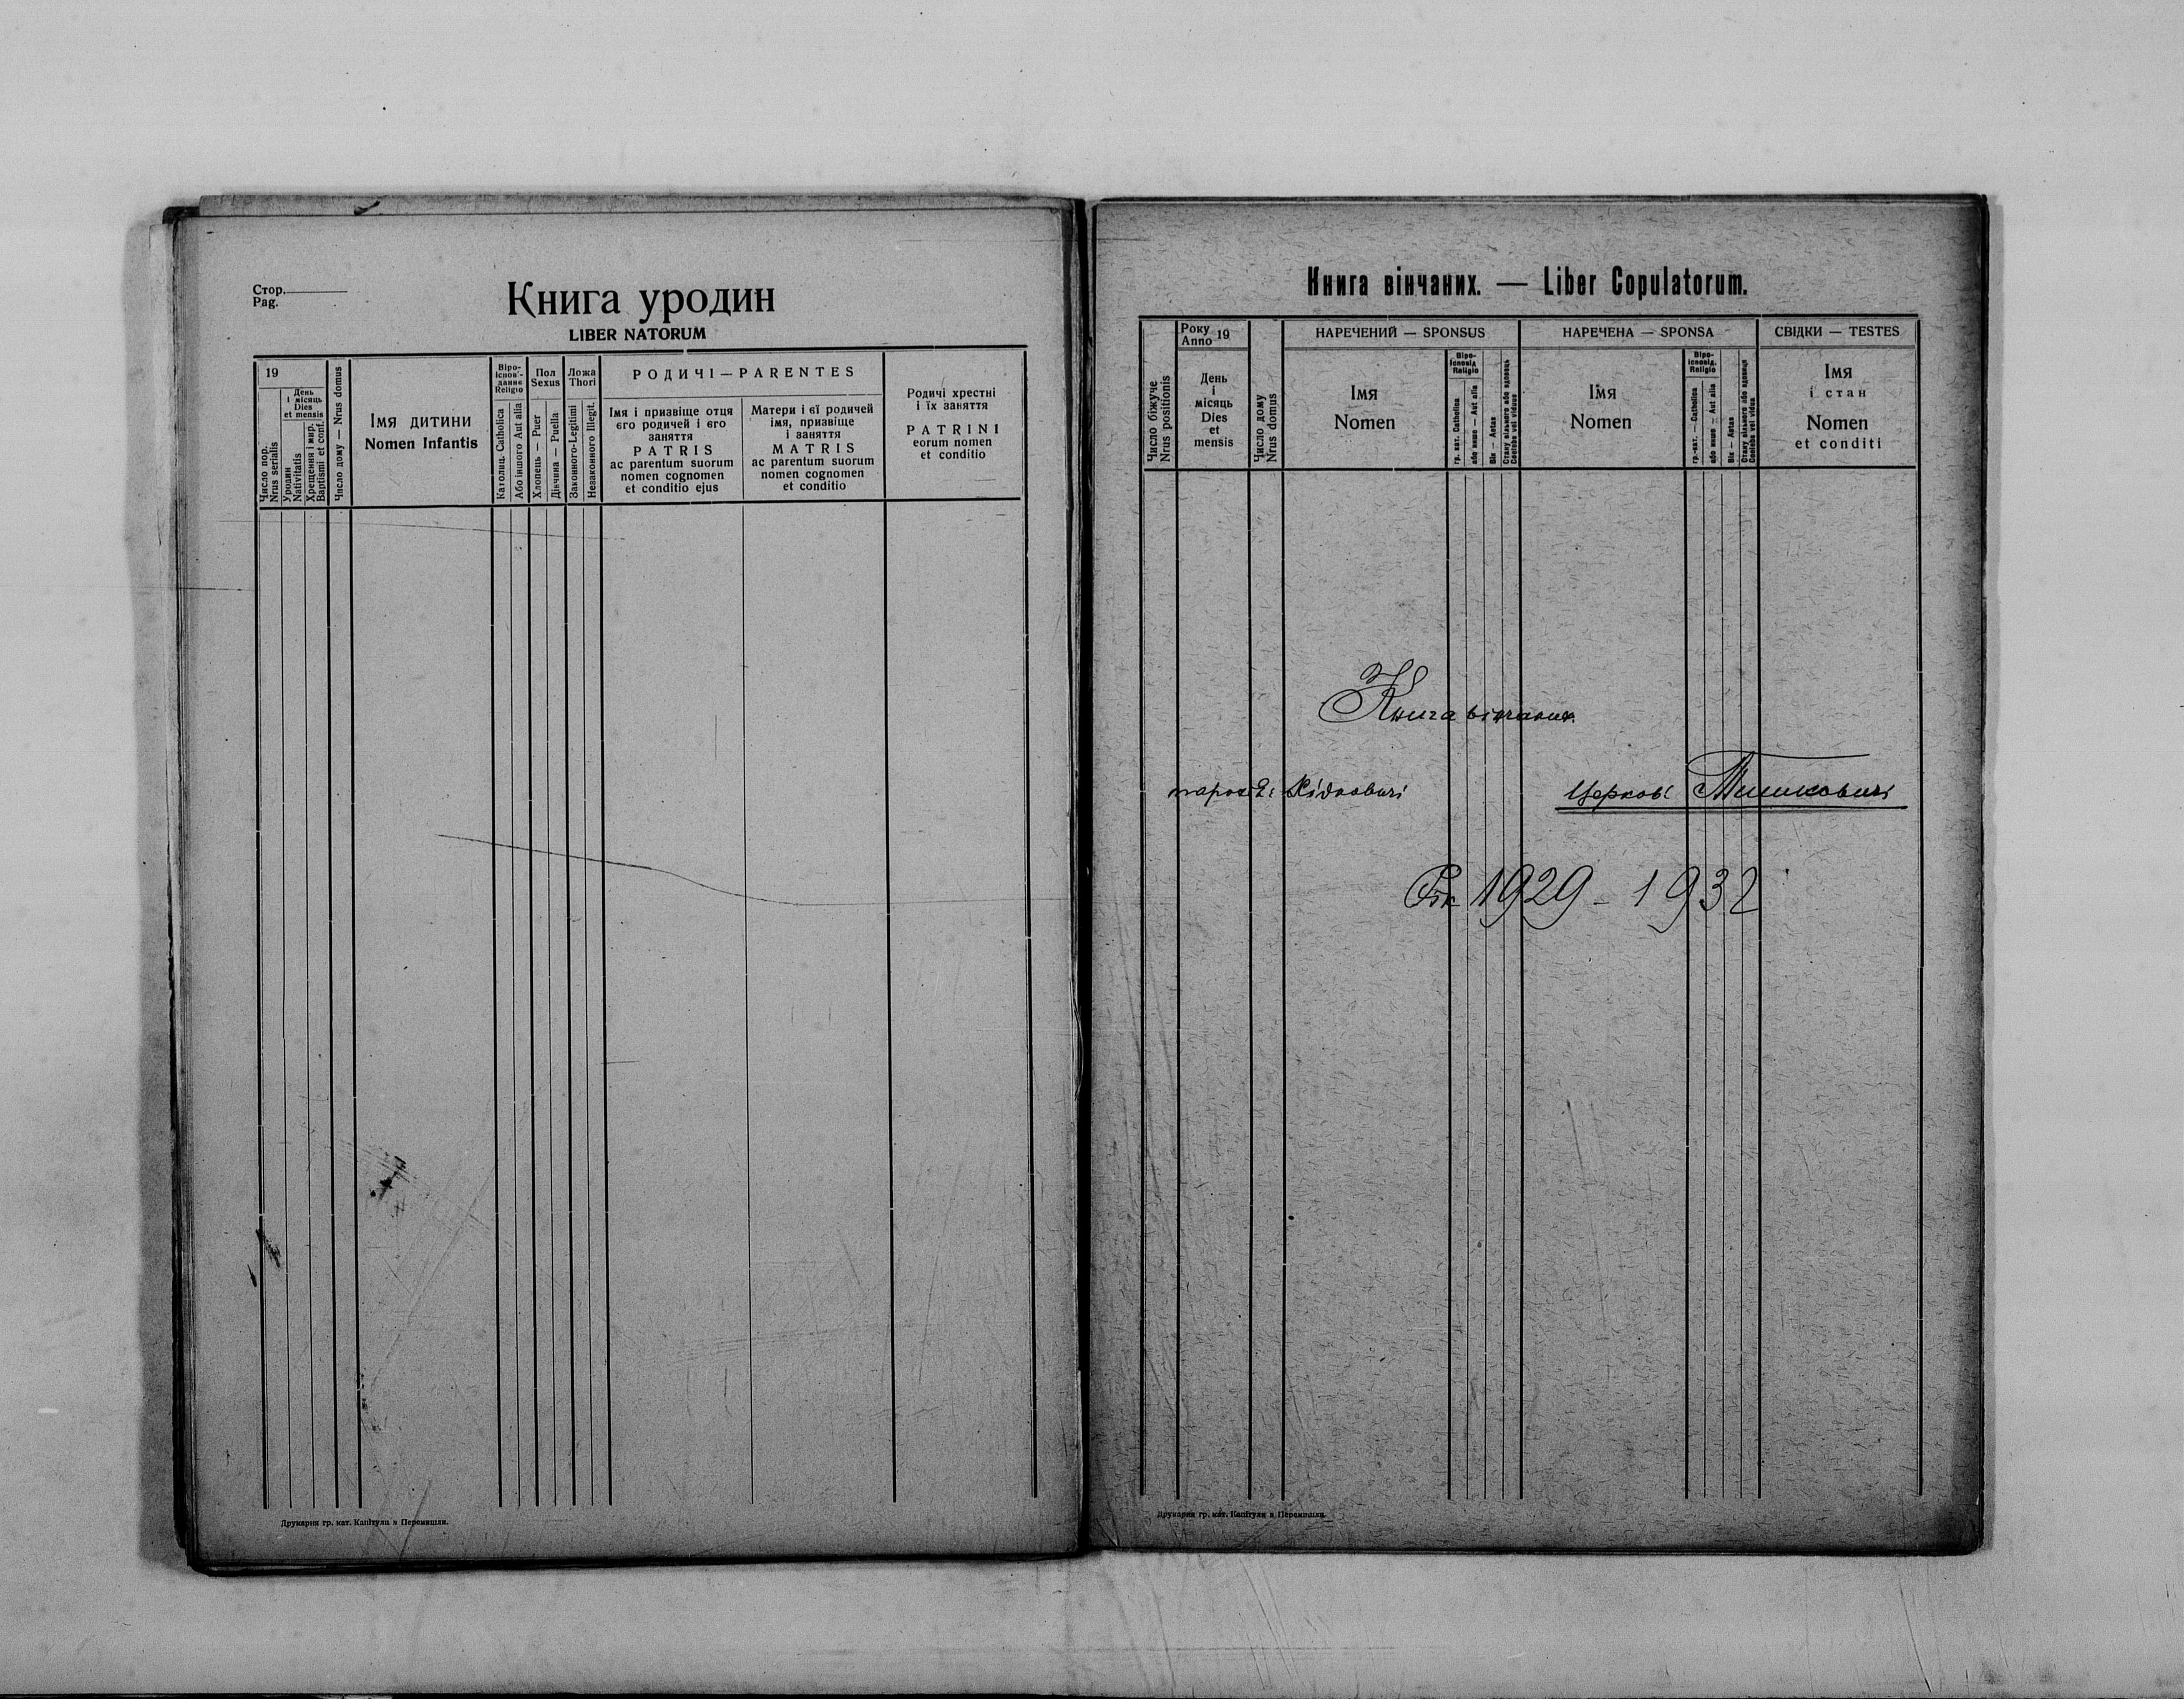 Стор.
Pag.
Книга уродин
LIBER NATORUM
19
День
і місяць
Dies
et mensis
Число пор.
Nrus serialis
Уродин
Nativitatis
Хрещення і мир.
Baptismi et conf.
Число дому — Nrus domus
Імя дитини
Nomen Infantis
Віро-
існові-
дання
Religio
Католиц. Catholica
Або іншого Aut alia
Пол
Sexus
Хлопець — Puer
Дівчина — Puella
Ложа
Thori
Законного-Legitimi
Незаконного Illegit.
РОДИЧІ — PARENTES
Імя і призвіще отця
єго родичей і єго
заняття
PATRIS
ac parentum suorum
nomen cognomen
et conditio ejus
Матери і єї родичей
імя, призвіще
і заняття
MATRIS
ac parentum suorum
nomen cognomen
et conditio
Родичі хрестні
і їх заняття
PATRINI
eorum nomen
et conditio
Друкарня гр. кат. Капітули в Перемишли.
Книга вінчаних. — Liber Copulatorum.
Число біжуче
Nrus positionis
Року
Anno 19
День
і
місяць
Dies
et
mensis
Число дому
Nrus domus
НАРЕЧЕНИЙ — SPONSUS
Імя
Nomen
Religio
гр. кат. Catholica
або инше — Aut alia
Вік — Aetas
Стану вільного або вдовець
Coelebs vel viduus
НАРЕЧЕНА — SPONSA
Імя
Nomen
Religio
гр.-кат. — Catholica
або инше — Aut alia
Вік — Aetas
Стану вільного або вдовиця
Coelebs vel vidua
СВІДКИ — TESTES
Імя
і стан
Nomen
et conditi
Книга вінчаних.
Церков
Рік 1929 - 1932
Друкарня гр. кат. Капітули в Перемишли.